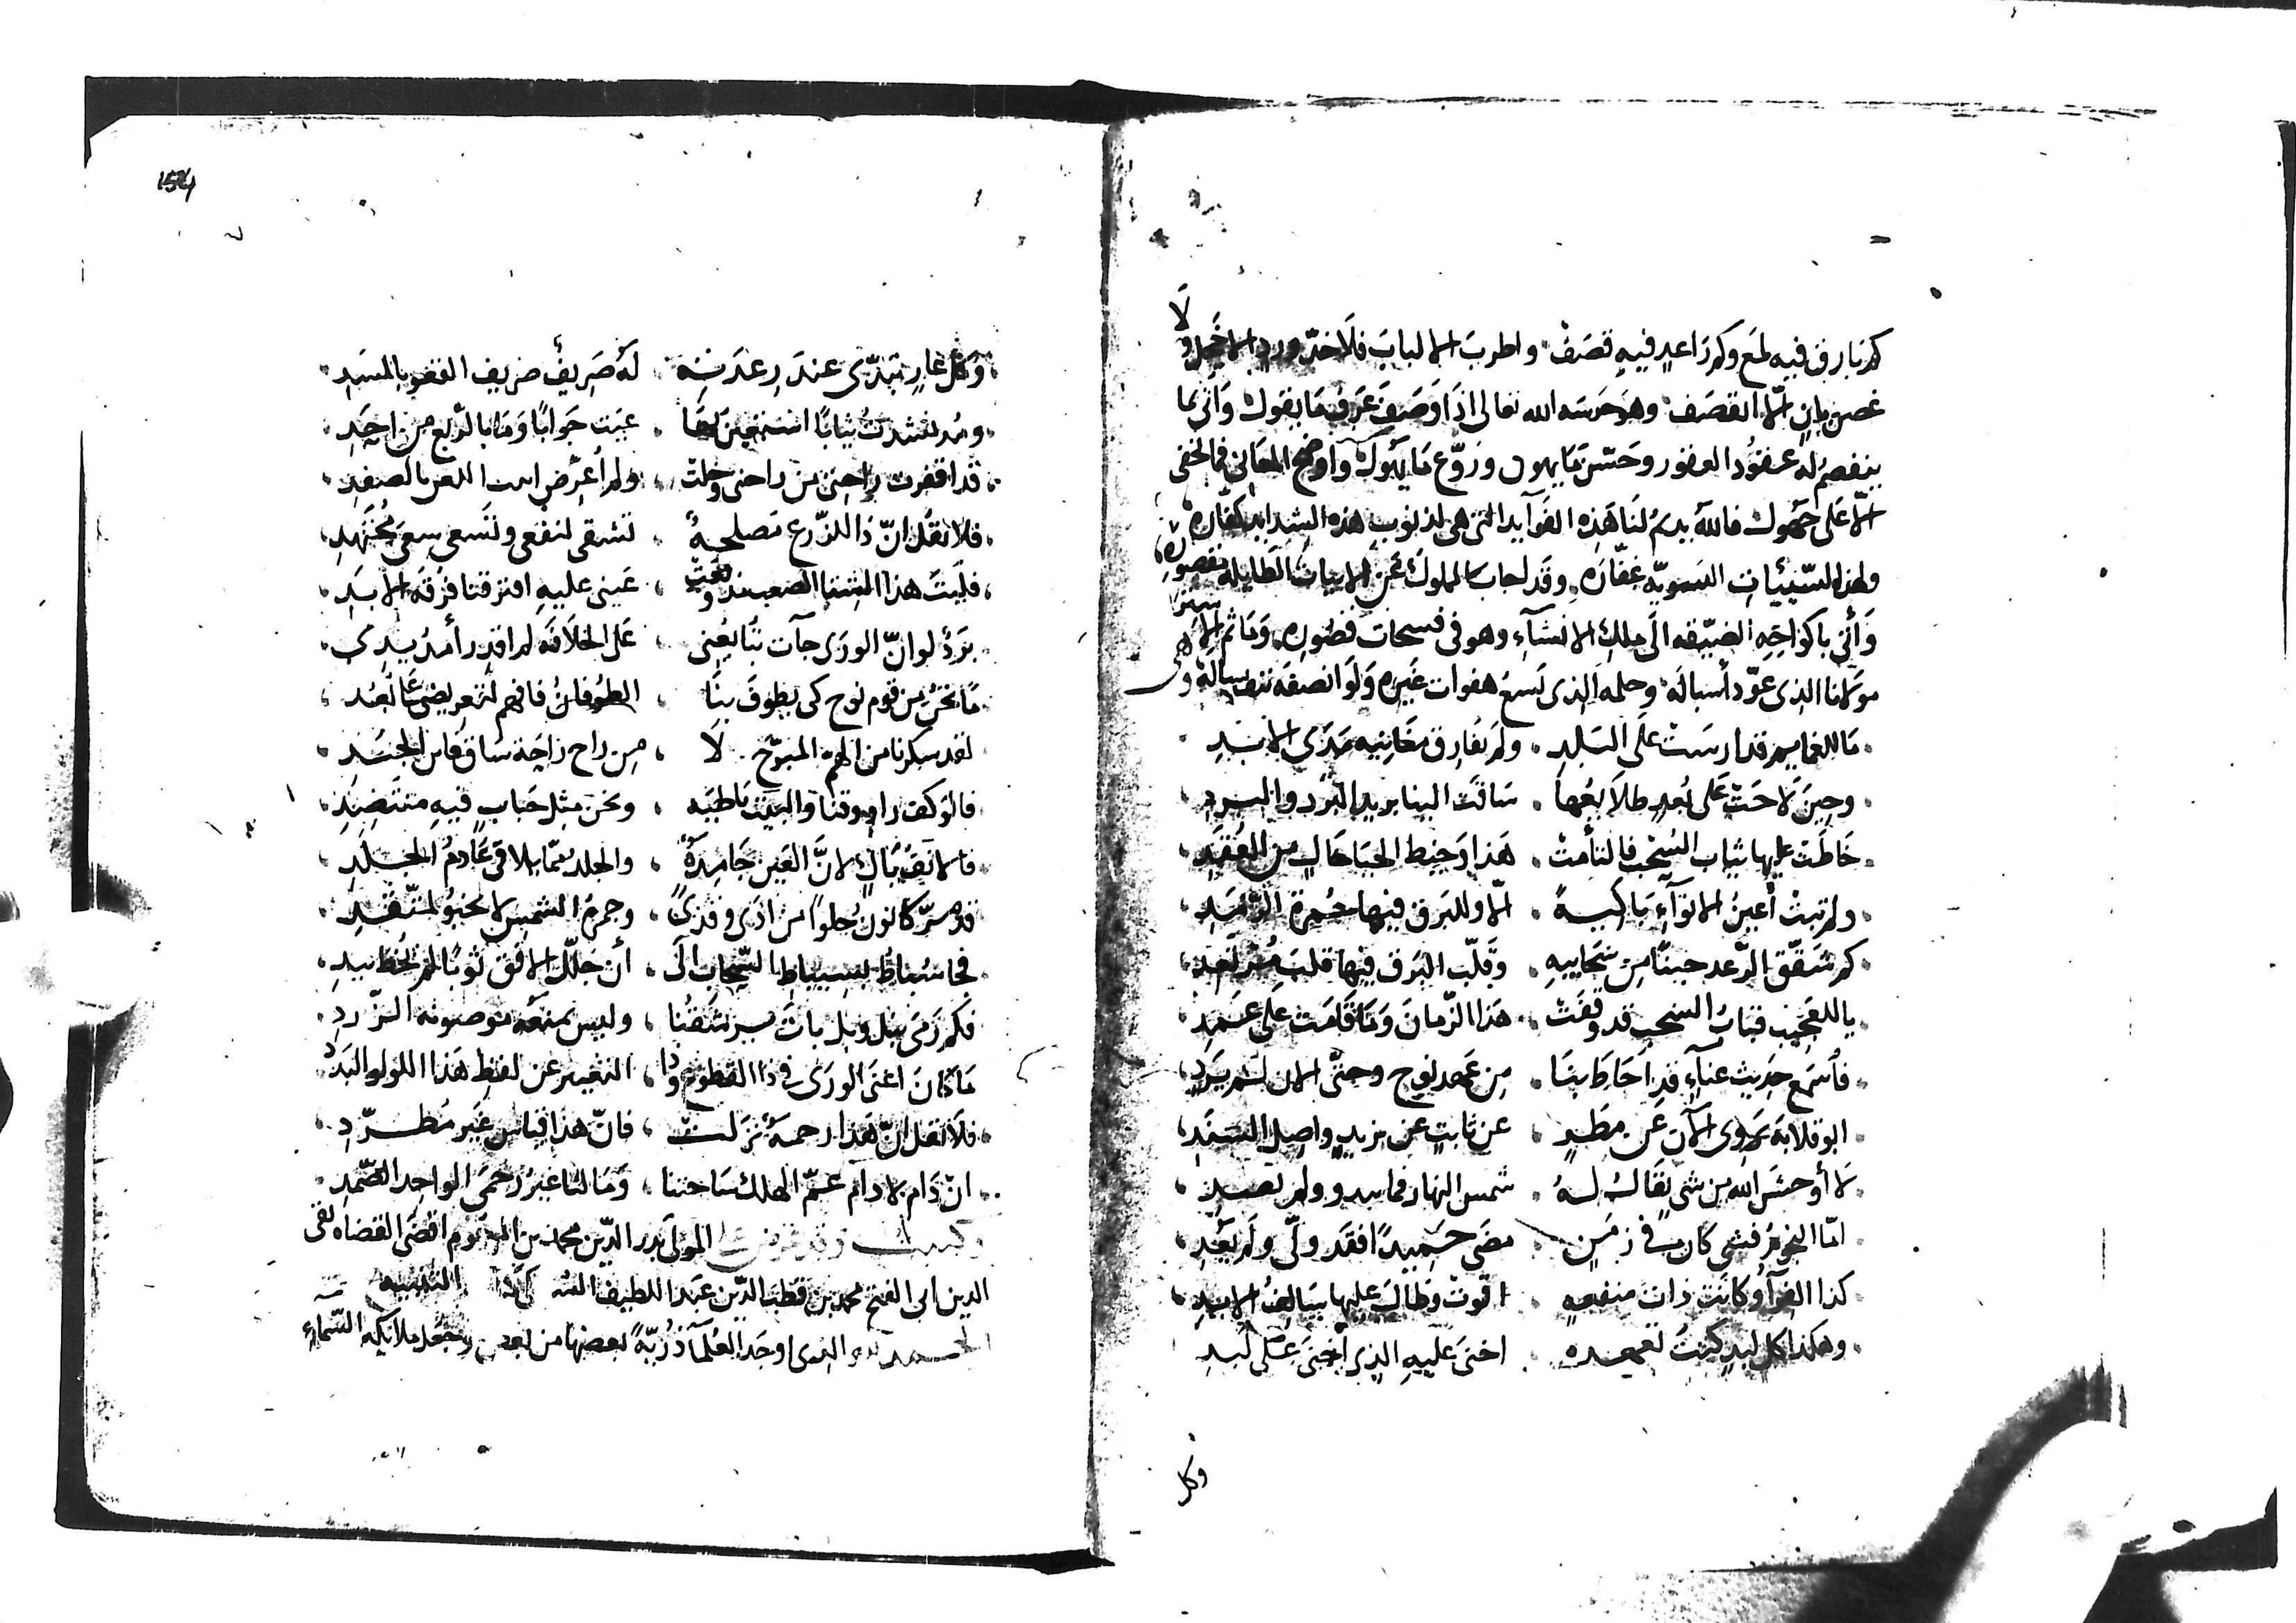 كم بارق فيه لمع وكم راعد فيه قصف واطرب الالباب فلا خدّ ورد الا خجل ولا
غصن بان الّا انقصف وهو حرسه الله تعالى اذا وصف عرف ما يقول واتى بما
ينفصم له عقود العقور وحسّن ما يهول وروّع ما يهول واوضح المعانى فما تخفى
الّا على جهول فالله يديم لنا هذه الفوآيد التى هى لذنوب هذه الشدايد كفّاره
ولهذه السّيئات السويّه غفّاره وقد اجاب المملوك عن الابيات الطايلة بقصوره
وأتى باكواخه الضيّقه الى ملك الانشآء وهو فى فسحات قصوره وما ثم الا ستر
مولانا الذى عوّد أسباله وحلمه الذى يسع هفوات غيره ولو انصفه رسالة وهى
ما للغمايم قد ارست على البلد ولم تفارق مغانيه مدى الابد
وحين لاحت على بُعد طلايعها ساقت الينا بريد البَرد والبرد
خاطت عليها ثياب السُحب فالتأمت هذا وخيط الحيا خال من العُقد
ولم تبت أعين الانوآء باكية الّا وللبرق فيها حُمرة الرّمد
كم شقّق الرّعد جيبًا من سحايبه وقلّب البرق فيها قلب مرتعد
يا للعجيب قباب السحب قد وقفت هذا الزّمان وما قامت على عمد
فأسمع حديث عنآءٍ قد احاط بنا من عهد نوح وحتّى الان لم يرد
ابو قلابة يروى الآن عن مطرٍ عن ثابتٍ عن يزيدٍ واصل السند
لا أوحش الله من شىءٍ يقال له شمس النهار فما يبدو ولم تعد
امّا النجوم فشىء كان فى زمن مضى حميدًا فقد ولّى ولم يعد
كذا الفرآء وكانت ذات منفعه اقوت وطال عليها سالف الابد
وهكذا كل لبدٍ كنت تعهده اخنى عليه الذى اخنى على لبد
وكل
وكل غارٍ تبدّى عند رعدته له صريفٌ صريف القعو بالمسد
ومُذ نشدت ثيابًا استعين بها عيّت جوابًا وما بالرّبع من احد
قد اقفرت راحتى من راحتى وخلت ولم أعرّض ابيت اللعن بالصفد
فلا تقل انّ ذا للزّرع مصلحةٌ نشقى لنفعى ونسعى سعى مجتهد
فليت هذا الشتا الصعب مذ وقعت عينى عليه افترقنا فرقة الابد
بردٌ لو انّ الورى جآت تبايعنى على الخلافه لم اقدر أمدّ يدى
ما نحن من قوم نوح كى يطوف بنا الطوفان فافهم لتعريضى
لقد سكرنا من الهمّ المبرّح لا من راح راحة ساق
فالوكف راووقنا والبيت باطيه ونحن مثل حباب فيه منتضد
فالانف بالٍ لانّ العين جامدةٌ والجلد ممّا يلاقى عادم الجلد
قد مرّ كانون خلوًا من اذى وقذىً وجمرة الشمس لا تخبو لمتّقد
فجا سُباطُ بسيباط السّحاب الى أن جلّل الافق ثوبًا لم يُخط بيد
فكم رمى بنبل وبل بات يرشقنا وليس يمنعه موضونه الزّرد
ما كان اغنى الورى فى ذا القطوع وذا التغيير عن لفظ هذا اللولو البدد
فلا تقل انّ هذا رحمةٌ نزلت فانّ هذا قياس غير مطّرد
ان دام لا دام عمّ الهلك ساحتنا وما لنا غير رحمى الواحد الصّمد
وكتبت وقد عرض علىّ المولى بدر الدّين محمد بن المخدوم اقضى القضاه تقى
الدين ابى الفتح محمد بن قطب الدّين عبد اللطيف التنبيه
الحمد لله الذى اوجد العُلمآ ذُريّة بعضها من بعض وجعل ملايكه السّمآء